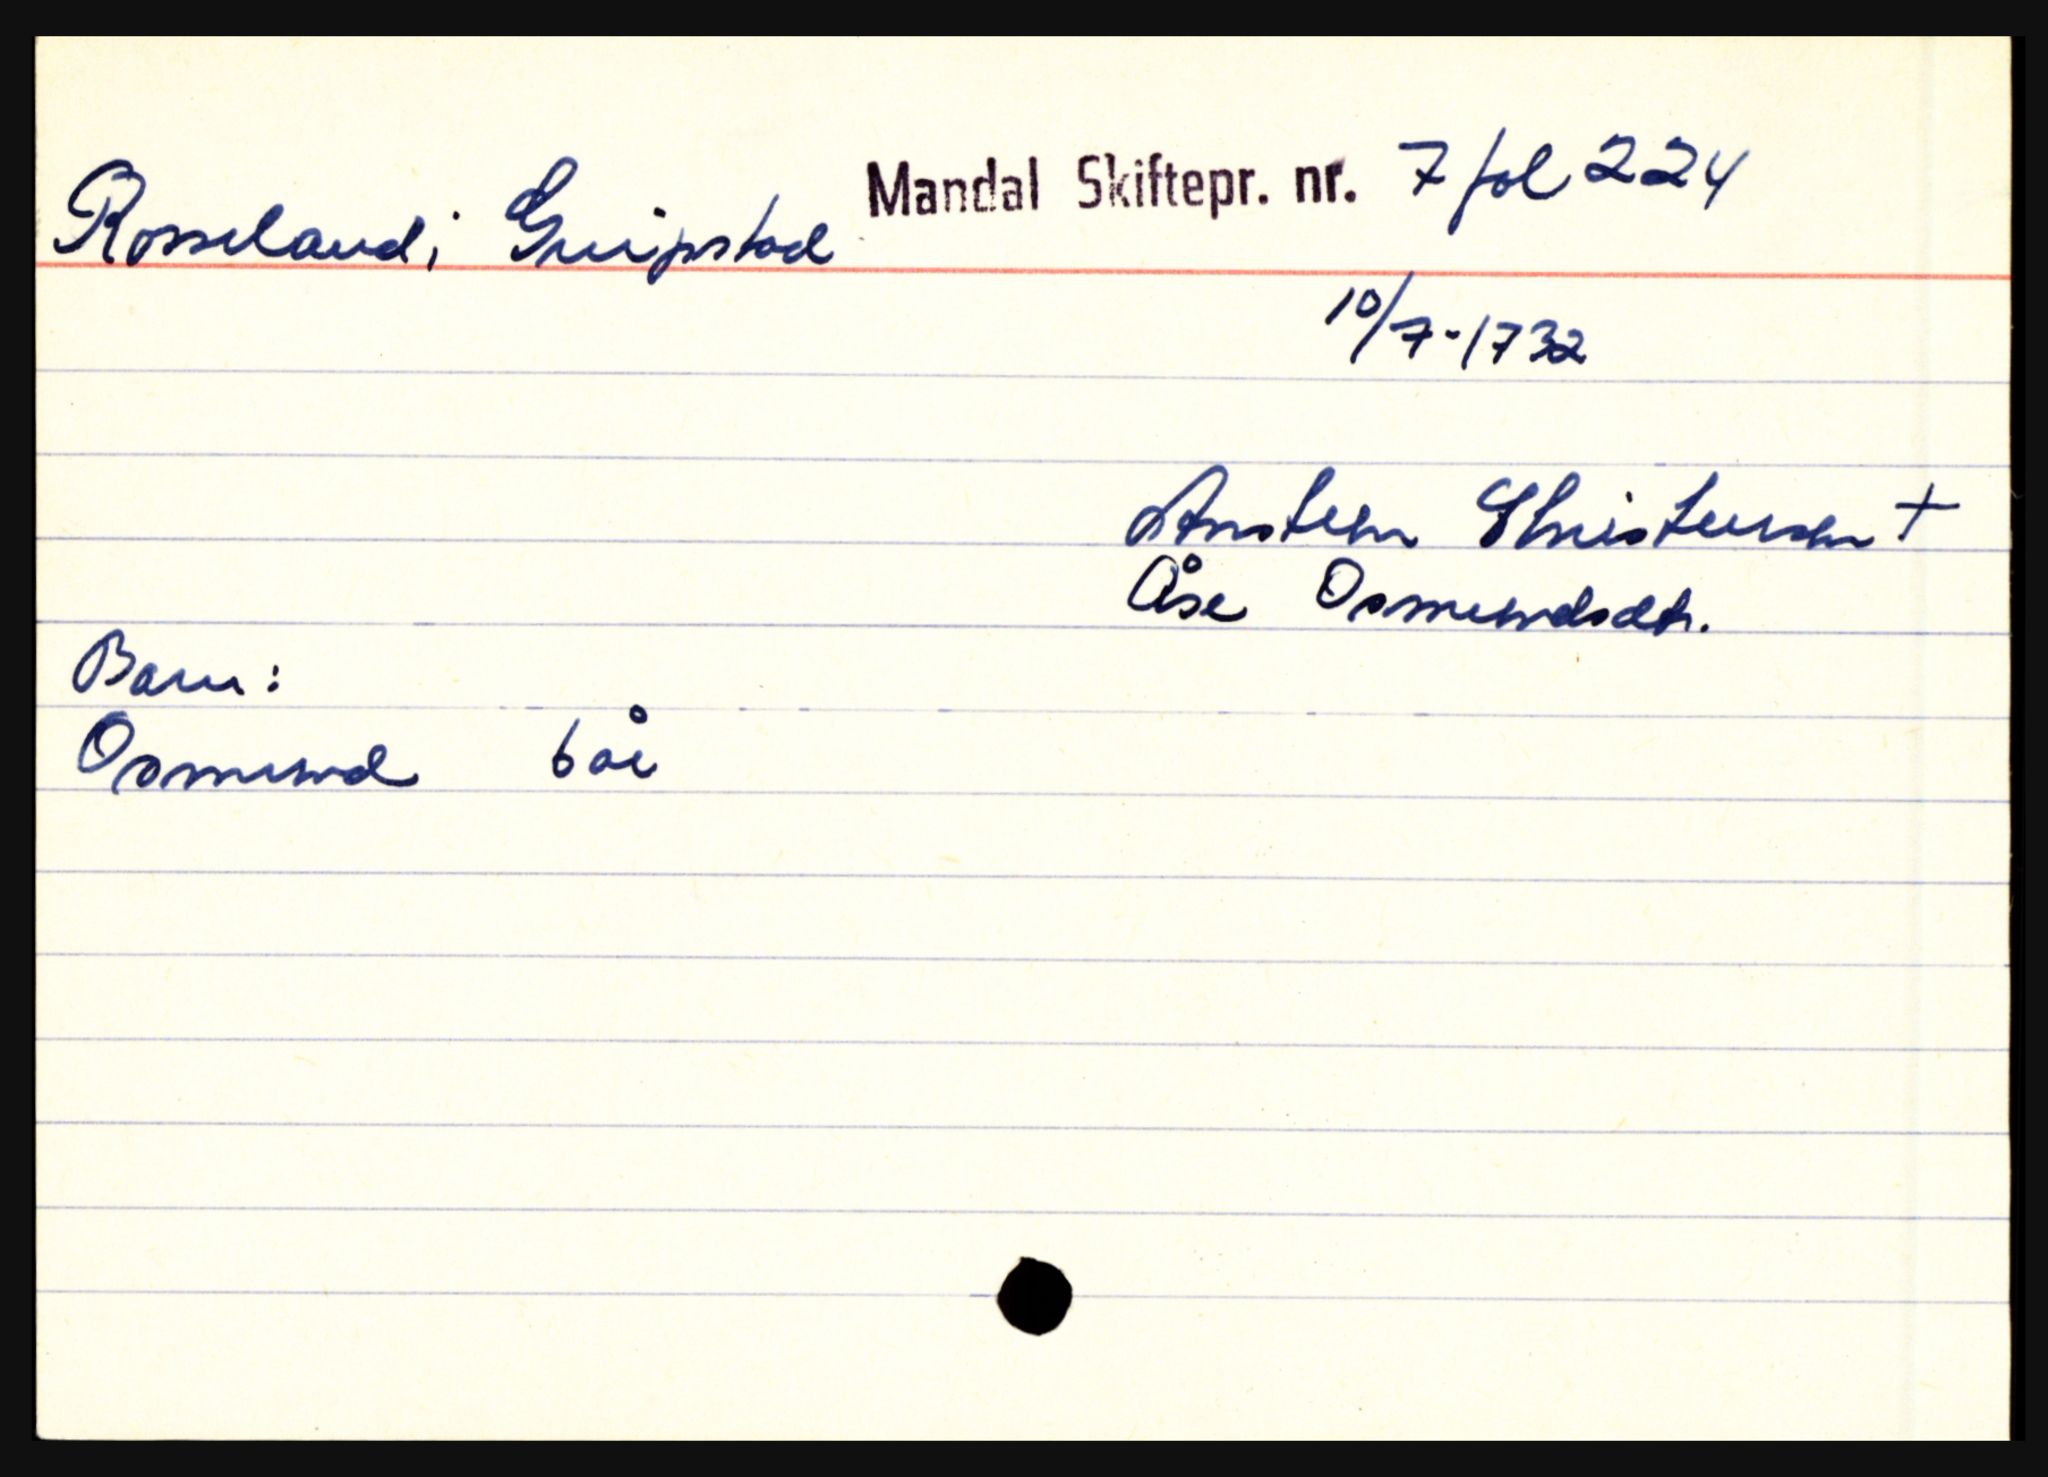 Rosseland, Greipstad Mandal Skiftepr. nr. 7 fol 224
10/7-1732
Ansten Christensen +
Åse Osmundsdtr.
Barn:
Osmund 6 år